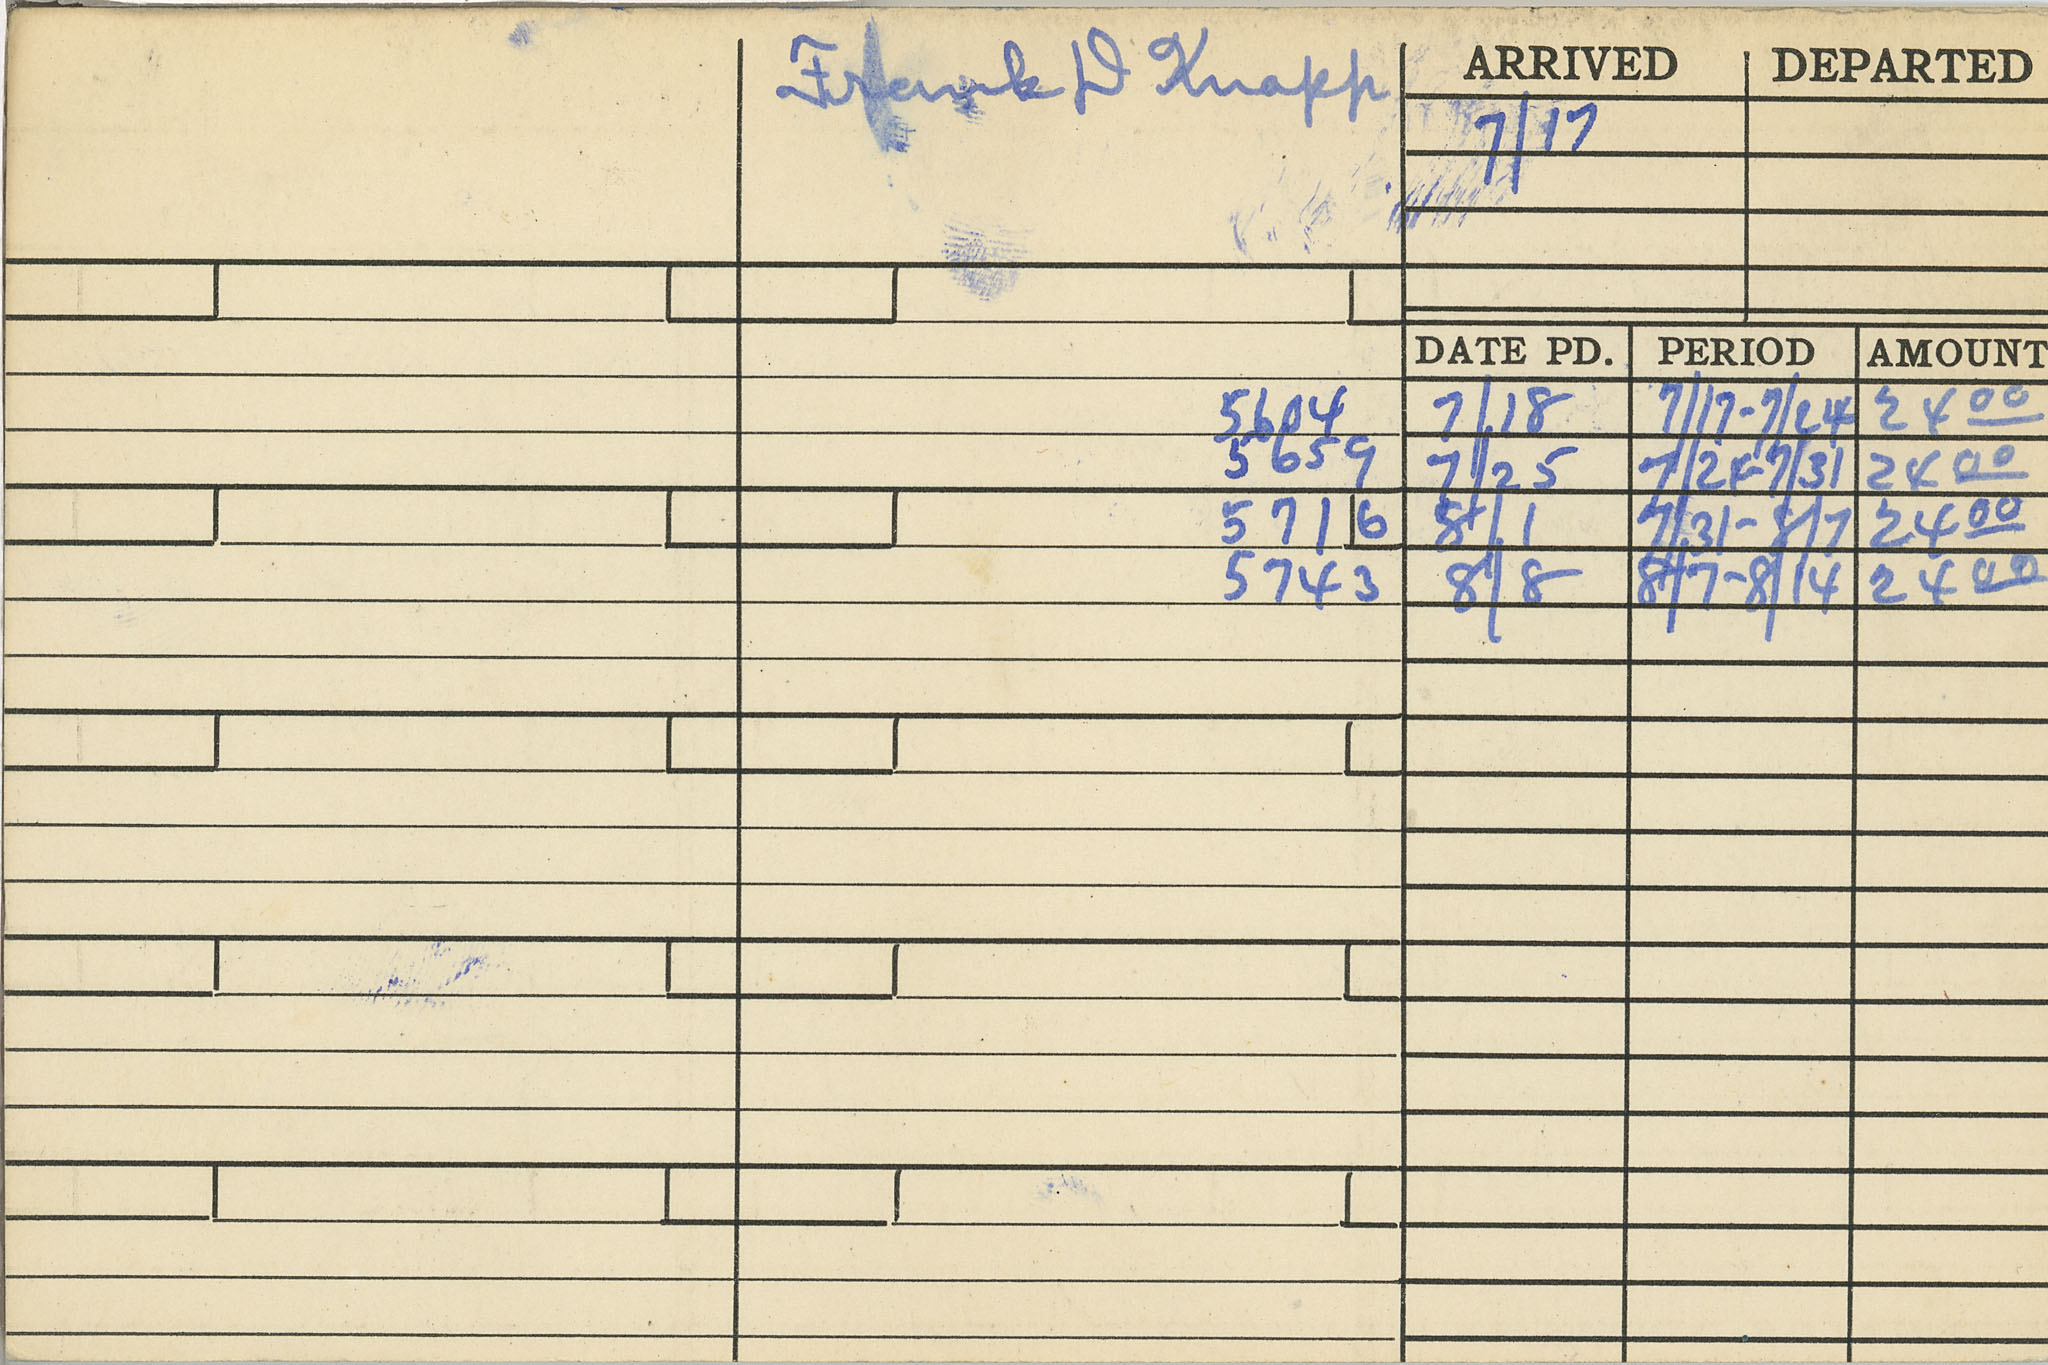 Frank D Knapp ARRIVED DEPARTED
7/17
DATE PD. PERIOD AMOUNT
5604 7/18 7/17-7/24 24 00
5659 7/25 7/24-7/31 24 00
5716 8/1 7/31-8/7 24 00
5743 8/8 8/7-8/14 24 00